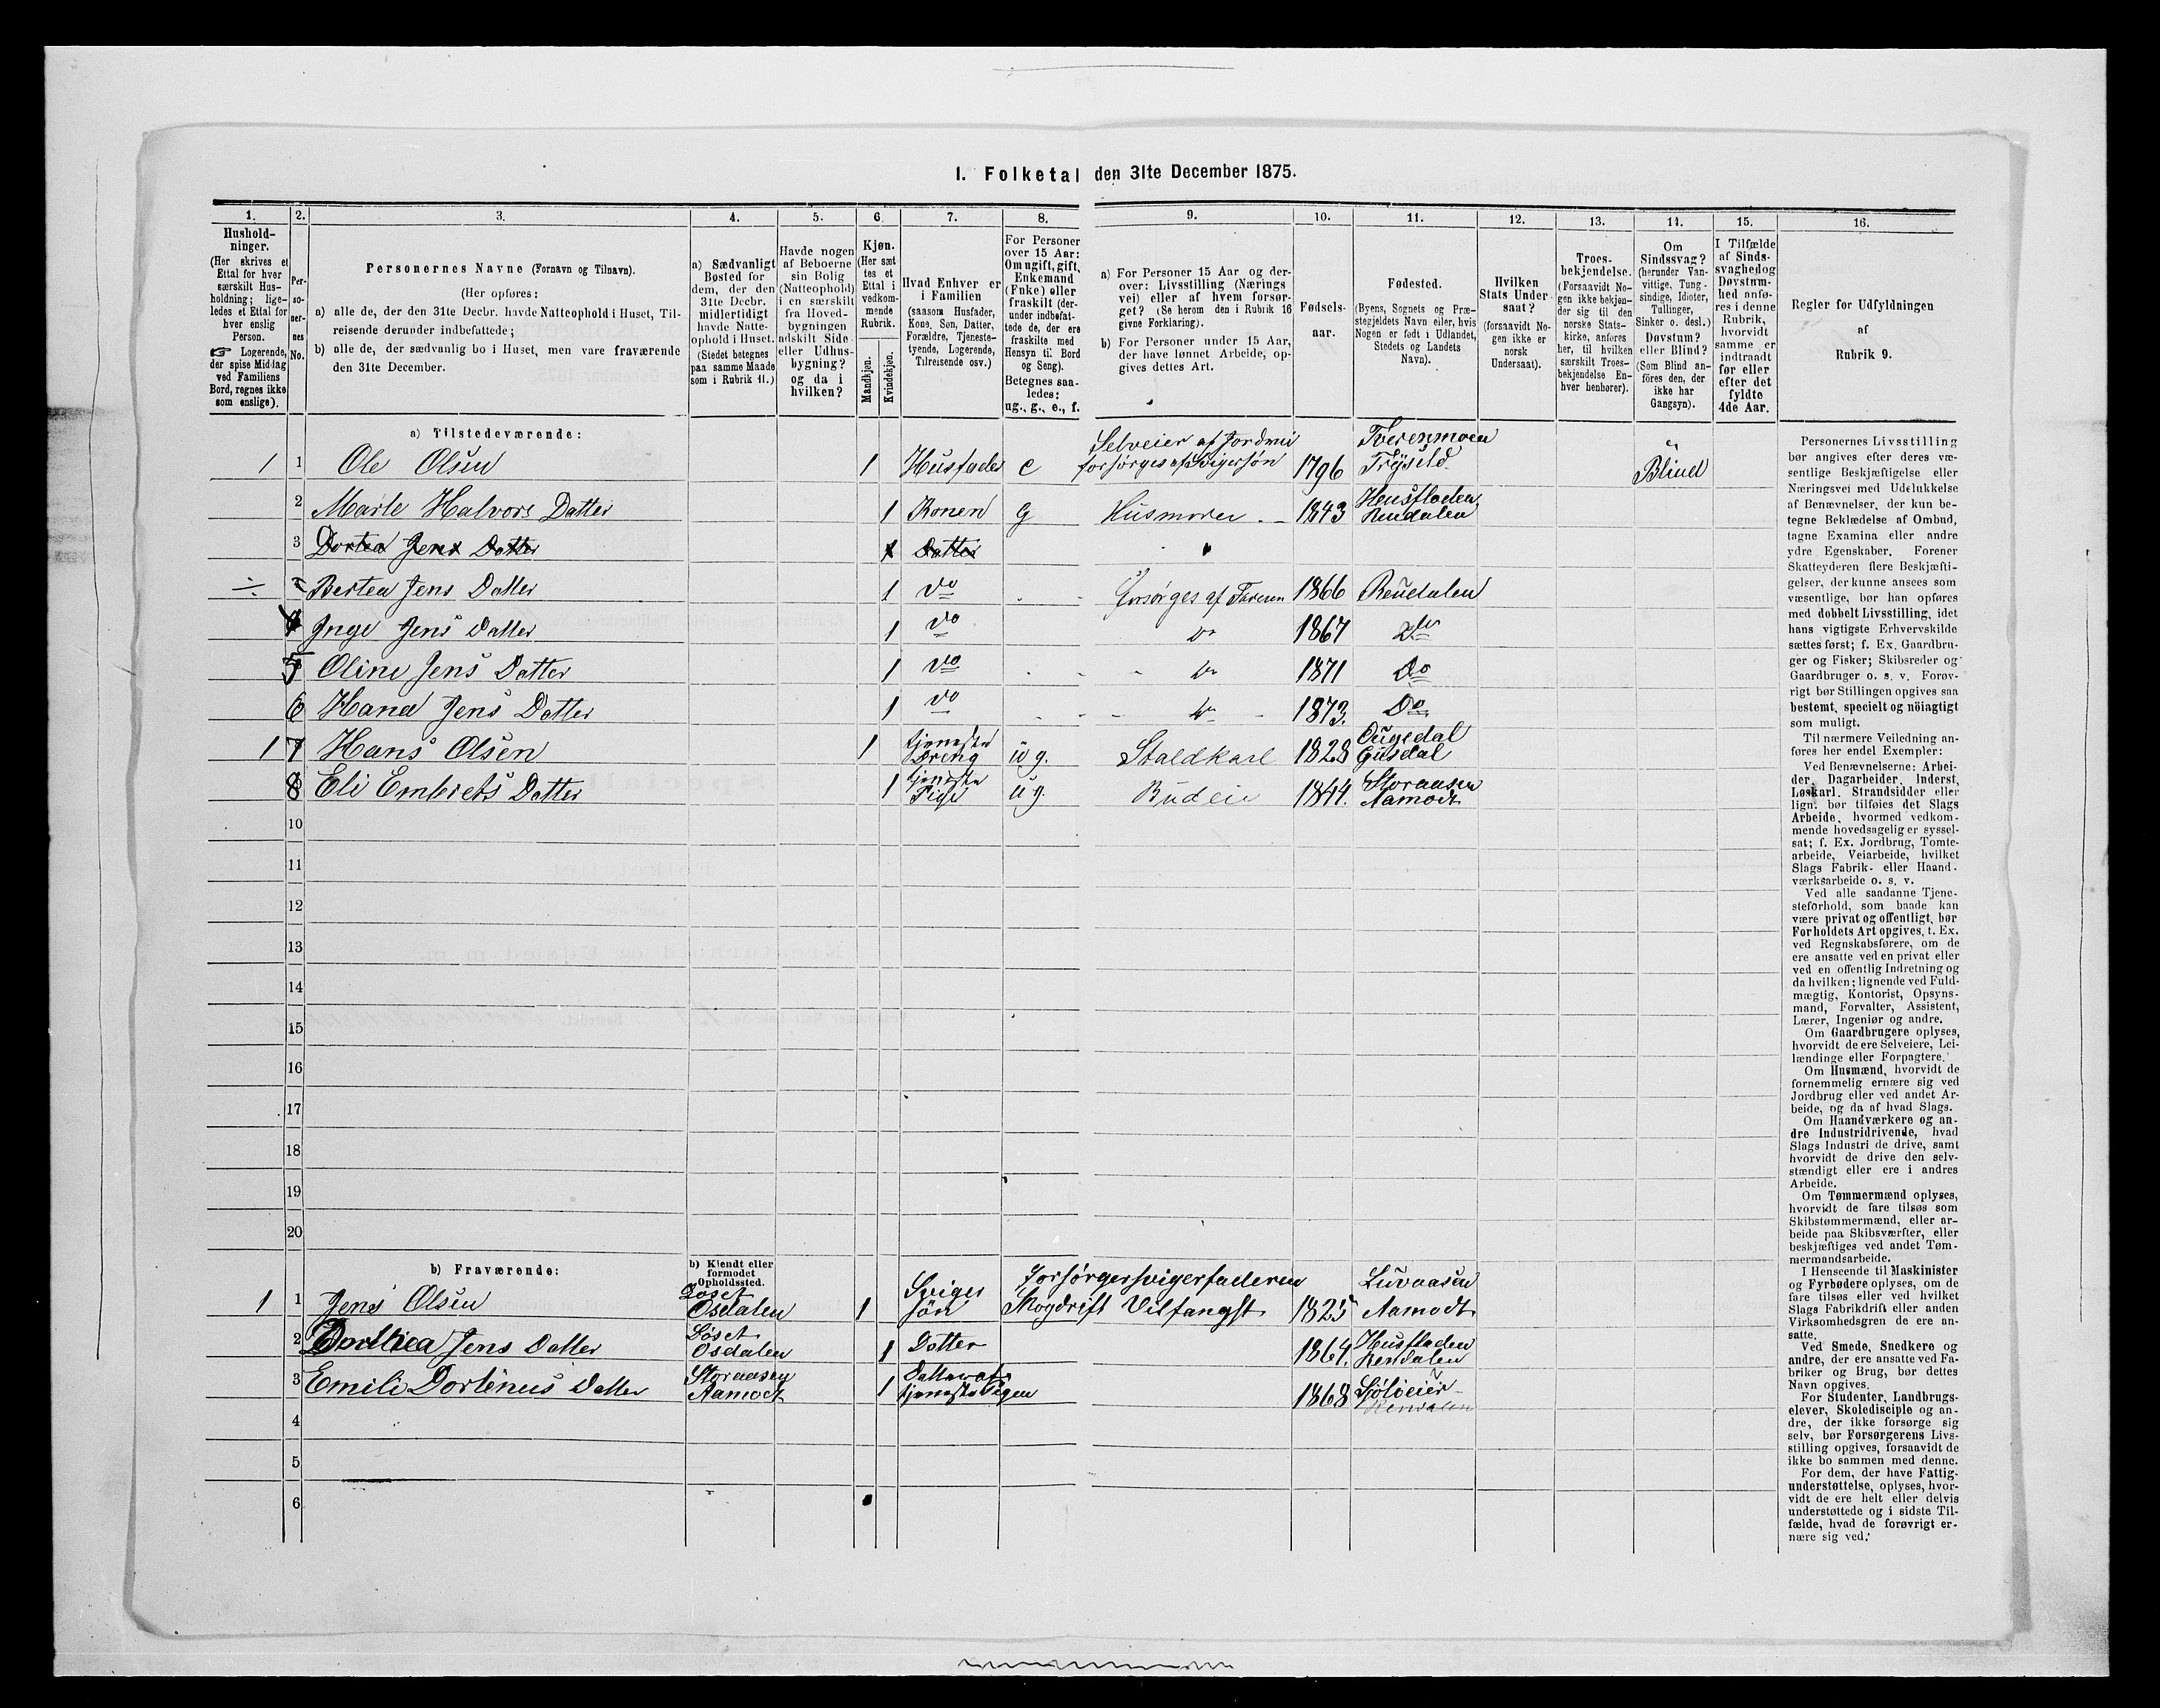 1. Folketal den 31te December 1875.
1. 2. 3. 4. 5. 6. 7. 8. 9. 10. 11. 12. 13. 14. 15. 16.
Hushold-
ninger.
(Her skrives et
Ettal for hver
særskilt Hus-
holdning; lige-
ledes et Ettal for
hver enslig
Person.
☞ Logerende,
der spise Middag
ved Familiens
Bord, regnes ikke
som enslige).
Per-
so-
ner-
nes
No.
Personernes Navne (Fornavn og Tilnavn).
(Her opføres:
a) alle de, der den 31te Decbr. havde Natteophold i Huset, Til-
reisende derunder indbefattede;
b) alle de, der sædvanlig bo i Huset, men vare fraværende
den 31te December.
a) Sædvanligt
Bosted for
dem, der den
31te Decbr.
midlertidigt
havde Natte-
ophold i Huset.
(Stedet betegnes
paa samme Maade
som i Rubrik 11.)
Havde nogen
af Beboerne
sin Bolig
(Natteophold)
i en særskilt
fra Hoved-
bygningen
adskilt Side-
eller Udhus-
bygning?
og da i
hvilken?
Kjøn.
(Her sæt
tes et
Ettal i
vedkom-
mende
Rubrik.
Mandkjøn.
Kvindekjøn.
Hvad Enhver er
i Familien
(saasom Husfader,
Kone, Søn, Datter,
Forældre, Tjeneste-
tyende, Logerende,
Tilreisende osv.)
For Personer
over 15 Aar:
Om ugift, gift,
Enkemand
(Enke) eller
fraskilt (der-
under indbefat-
tede de, der ere
fraskilte med
Hensyn til Bord
og Seng).
Betegnes saa-
ledes:
ug., g., e., f.
a) For Personer 15 Aar og der-
over: Livsstilling (Nærings
vei) eller af hvem forsør-
get? (Se herom den i Rubrik 16
givne Forklaring).
b) For Personer under 15 Aar,
der have lønnet Arbeide, op-
gives dettes Art.
Fødsels-
aar.
Fødested.
(Byens, Sognets og Præ-
stegjeldets Navn eller, hvis
Nogen er født i Udlandet,
Stedets og Landets
Navn).
Hvilken
Stats Under-
saat?
(forsaavidt No-
gen ikke er
norsk
Undersaat).
Troes-
bekjendelse.
(Forsaavidt No-
gen ikke bekjen-
der sig til den
norske Stats-
kirke, anføres
her, til hvilken
særskilt Troes-
bekjendelse En-
hver henhører).
Om
Sindssvag?
(herunder Van-
vittige, Tung-
sindige, Idioter,
Tullinger,
Sinker o. desl.)
Døvstum?
eller Blind?
(Som Blind an-
föres den, der
ikke har
Gangsyn).
I Tilfælde
af Sinds-
svaghed og
Døvstum-
hed anfø-
res i denne
Rubrik,
hvorvidt
samme er
indtraadt
før eller
efter det
fyldte
4de Aar.
Regler for Udfyldningen
af
Rubrik 9.
a) Tilstedeværende:
Selveier af Jordmii Tverenmoen
1 1 Ole Olsen 1 Husfader e forsørges af Svigersøn 1796 Trysild Blind
2 Marte Halvors Datter 1 Konen g Husmoder 1843 Husfloden Rendalen
3 Dortea Jens Datter 1 Datter
Bertea Jens Datter 1 do Forsørges af Faderen 1866 Rendalen
4 Inge Jens Datter 1 do do 1867 do
5 Oline Jens Datter 1 do do 1871 Do
6 Hana Jens Datter 1 do do 1873. Do
1 7 Hans Olsen 1 tjeneste Dreng ug. Staldkarl 1828 Gusdal
8 Eli Embrets Datter 1 tjeneste Pige ug. Budeie 1844. Storaasen Aamodt
10
11
12
13
14
15
16
17
18
19
20
b) Fraværende:
b) Kjendt eller
formodet
Opholdssted.
1 1 Jens Olsen Løset Osdalen 1 Sviger søn Forsørger svigerfaderen Skogdrift Vilfangst 1825 Luvaasen Aamodt
2 Dorthea Jens Datter Løset Osdalen 1 Dotter 1864. Husfloden Rendalen
3 Emili Dortinus Datter Storaasen Aamodt 1 Datter af tjenestepigen 1868 Rendalen
4
5
6
Personernes Livsstilling
bør angives efter deres væ-
sentlige Beskjæftigelse eller
Næringsvei med Udelukkelse
af Benævnelser, der kun be-
tegne Beklædelse af Ombud,
tagne Examina eller andre
ydre Egenskaber. Forener
Skatteyderen flere Beskjæfti-
gelser, der kunne ansees som
væsentlige, bør han opføres
med dobbelt Livsstilling, idet
hans vigtigste Erhvervskilde
sættes først; f. Ex. Gaardbru-
ger og Fisker; Skibsreder og
Gaardbruger o. s. v. Forøv-
rigt bør Stillingen opgives saa
bestemt, specielt og nöiagtigt
som muligt.
Til nærmere Veiledning an-
føres her endel Exempler:
Ved Benævnelserne: Arbei-
der, Dagarbeider, Inderst,
Løskarl, Strandsidder eller
lign. bør tilføies det Slags
Arbeide, hvormed vedkom-
mende hovedsagelig er syssel-
sat; f. Ex. Jordbrug, Tomte-
arbeide, Veiarbeide, hvilket
Slags Fabrik- eller Haand-
værksarbeide o. s. v.
Ved alle saadanne Tjene-
steforhold, som baade kan
være privat og offentligt, bør
Forholdets Art opgives, t. Ex.
ved Regnskabsførere, om de
ere ansatte ved en privat eller
ved en offentlig Indretning og
da hvilken; lignende ved Fuld-
mægtig, Kontorist, Opsyns-
mand, Forvalter, Assistent,
Lærer, Ingeniør og andre.
Om Gaardbrugere oplyses,
hvorvidt de ere Selveiere, Lei-
lændinge eller Forpagtere.
Om Husmænd, hvorvidt de
fornemmelig ernære sig ved
Jordbrug eller ved andet Ar-
beide, og da af hvad Slags.
Om Haandværkere og an-
dre Industridrivende, hvad
Slags Industri de drive, samt
hvorvidt de drive den selv-
stændigt eller ere i andres
Arbeide.
Om Tømmermænd oplyses,
hvorvidt de fare tilsøs som
Skibstømmermænd, eller ar-
beide paa Skibsværfter, eller
beskjæftiges ved andet Tøm-
mermandsarbeide.
I Henseende til Maskinister
og Fyrbødere oplyses, om de
fare tilsøs eller ved hvilket
Slags Fabrikdrift eller anden
Virksomhedsgren de ere an-
satte.
Ved Smede, Snedkere og
andre, der ere ansatte ved Fa-
briker og Brug, bør dettes
Navn opgives.
For Studenter, Landbrugs-
elever, Skoledisciple og an-
dre, der ikke forsørge sig
selv, bør Forsørgerens Livs-
stilling opgives, forsaavidt de
ikke bo sammen med denne.
For dem, der have Fattig-
understøttelse, oplyses, hvor-
vidt de ere helt eller delvis
understøttede og i sidste Til-
fælde, hvad de forøvrigt er-
nære sig ved.